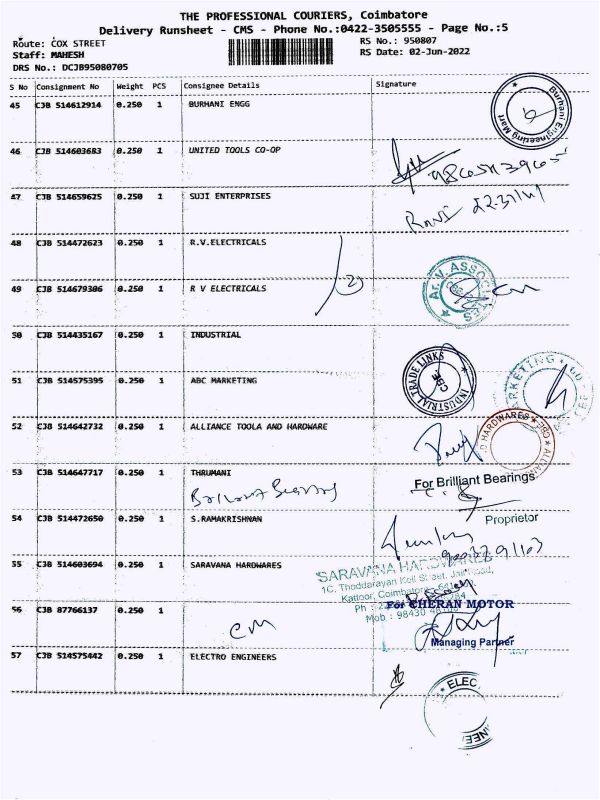 THE PROFESSIONAL COURIERS, Coimbatore
Delivery Runsheet - CMS - Phone No.:0422-3505555 - Page No.:5
Route: COX STREET
RS No.: 950807
Staff: MAHESH
RS Date: 02-Jun-2022
DRS No.: DCJB95080705
S No Consignment No Weight PCS Consignee Details Signature
45 CJB 514612914 0.250 1 BURHANI ENGG
Burhani Engineering Mart
46 CJB 514603683 0.250 1 UNITED TOOLS CO-OP
47 CJB 514659625 0.250 1 SUJI ENTERPRISES
48 CJB 514472623 0.250 1 R.V.ELECTRICALS
49 CJB 514679306 0.250 1 R V ELECTRICALS
Ar. V. ASSOCIATES
50 CJB 514435167 0.250 1 INDUSTRIAL
INDUSTRIAL TRADE LINKS
CBE.
51 CJB 514575395 0.250 1 ABC MARKETING
52 CJB 514642732 0.250 1 ALLIANCE TOOLA AND HARDWARE
HARDWARES CBE
53 CJB 514647717 0.250 1 THRUMANI
For Brilliant Bearings
54 CJB 514472650 0.250 1 S.RAMAKRISHNAN
Proprietor
55 CJB 514603694 0.250 1 SARAVANA HARDWARES
SARAVANA HARDWARES
1C, Thoddarayan Koil Street,
Kattoor, Coimbatore
56 CJB 87766137 0.250 1
CM
For CHERAN MOTOR
Managing Partner
57 CJB 514575442 0.250 1 ELECTRO ENGINEERS